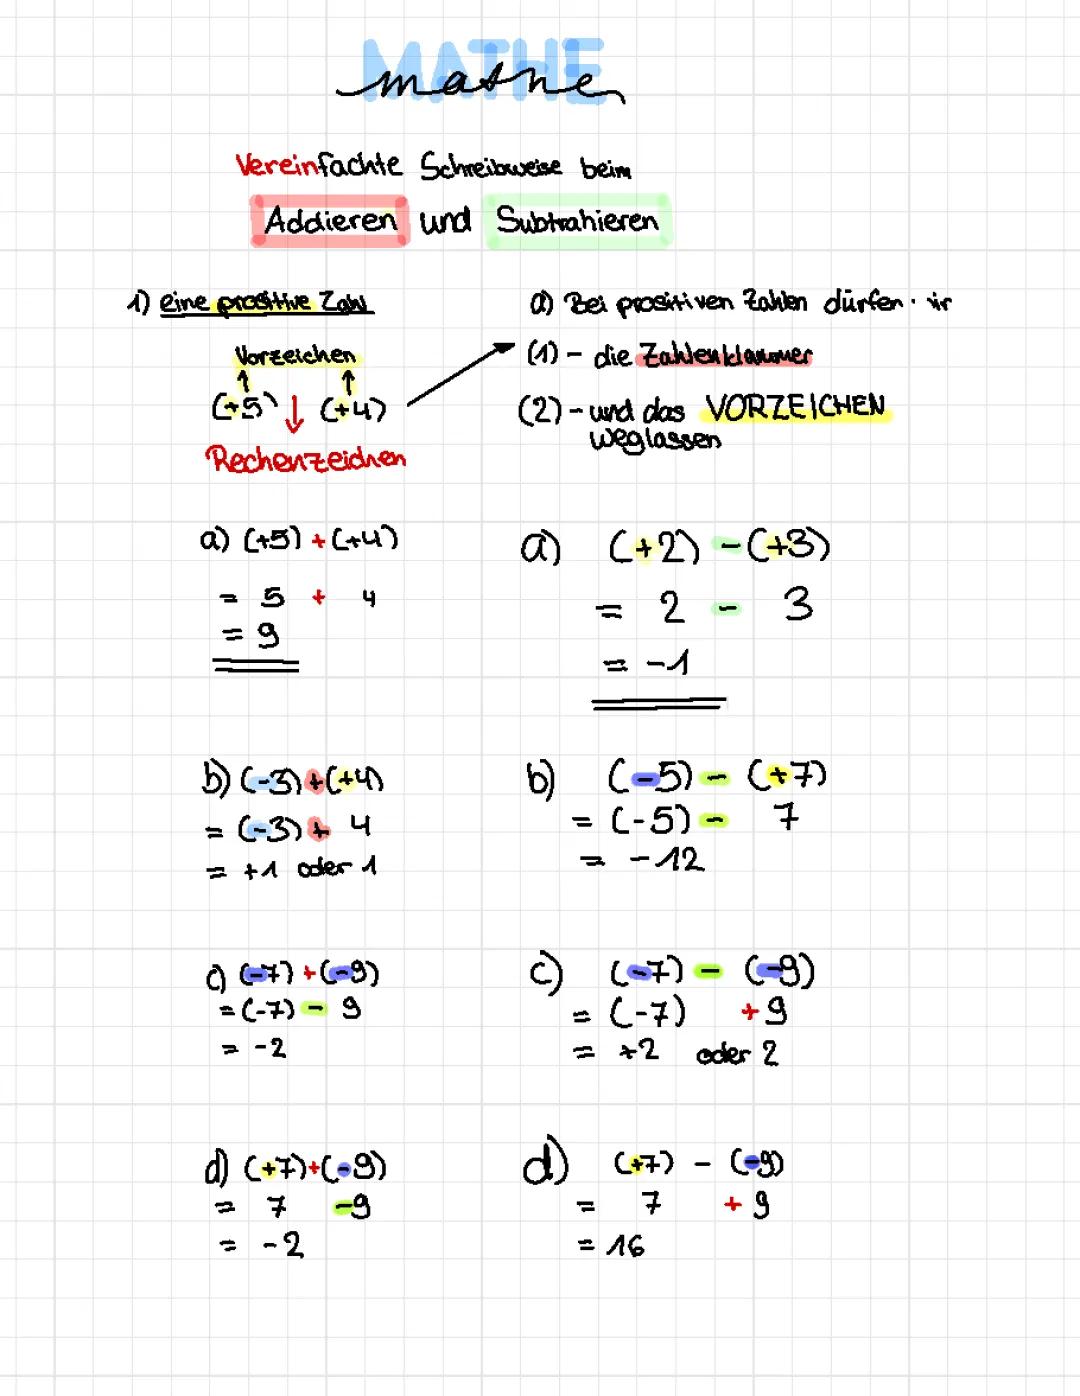 MATHE
mathe
Vereinfachte Schreibweise beim
Addieren und Subtrahieren
1) eine positive Zahl
Vorzeichen
(+5) (+4)
Rechenzeichen
a) Bei positiven Zahlen dürfen
(1) - die Zahlenklammer
(2) - und das VORZEICHEN
weglassen
a) (+5) + (+4)
= 5 + 4
= 9
a) (+2) - (+3)
= 2 - 3
= -1
b) (-3) + (+4)
= (-3) + 4
= +1 oder 1
b) (-5) - (+7)
= (-5) - 7
= -12
c) (-7) + (-9)
= (-7) - 9
= -2
c) (-7) - (-9)
= (-7) + 9
= +2 oder 2
d) (+7)+(-9)
= 7 -9
= -2
d) (+7) - (-9)
= 7 + 9
= 16